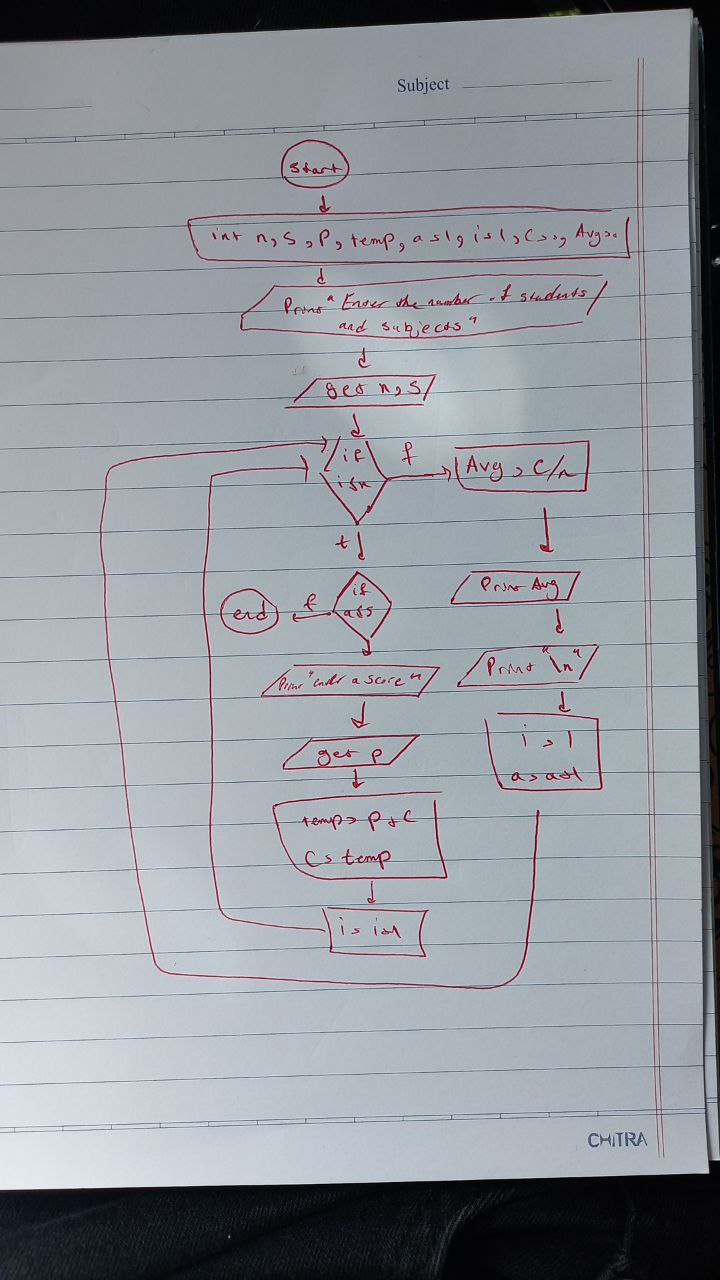 Subject
Start
int n, s, p, temp, a=1, i=1, C=0, Avg=0
Print "Enter the number of students
and subjects"
get n, s
if
i≤n
f
Avg = C/n
t
if
a≤s
f
end
Print Avg
Print "enter a score"
Print "\n"
get p
i = 1
a = a+1
temp = p + C
C = temp
i = i+1
CHiTRA